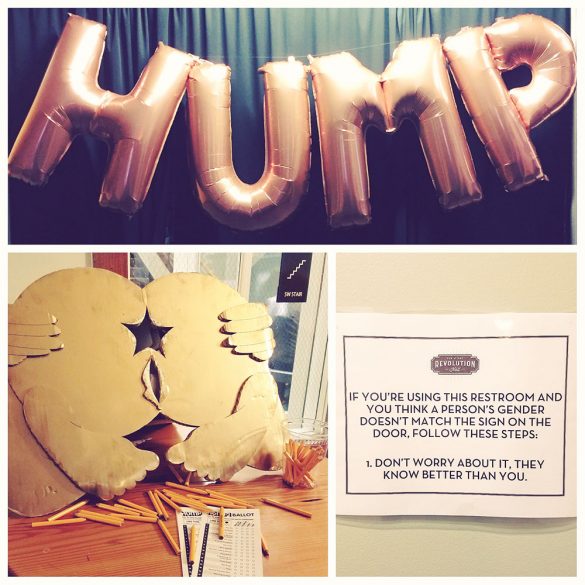 HUMP
SW STAIR
HUMP
BALLOT
REVOLUTION
HALL
IF YOU'RE USING THIS RESTROOM AND
YOU THINK A PERSON'S GENDER
DOESN'T MATCH THE SIGN ON THE
DOOR, FOLLOW THESE STEPS:
1. DON'T WORRY ABOUT IT, THEY
KNOW BETTER THAN YOU.